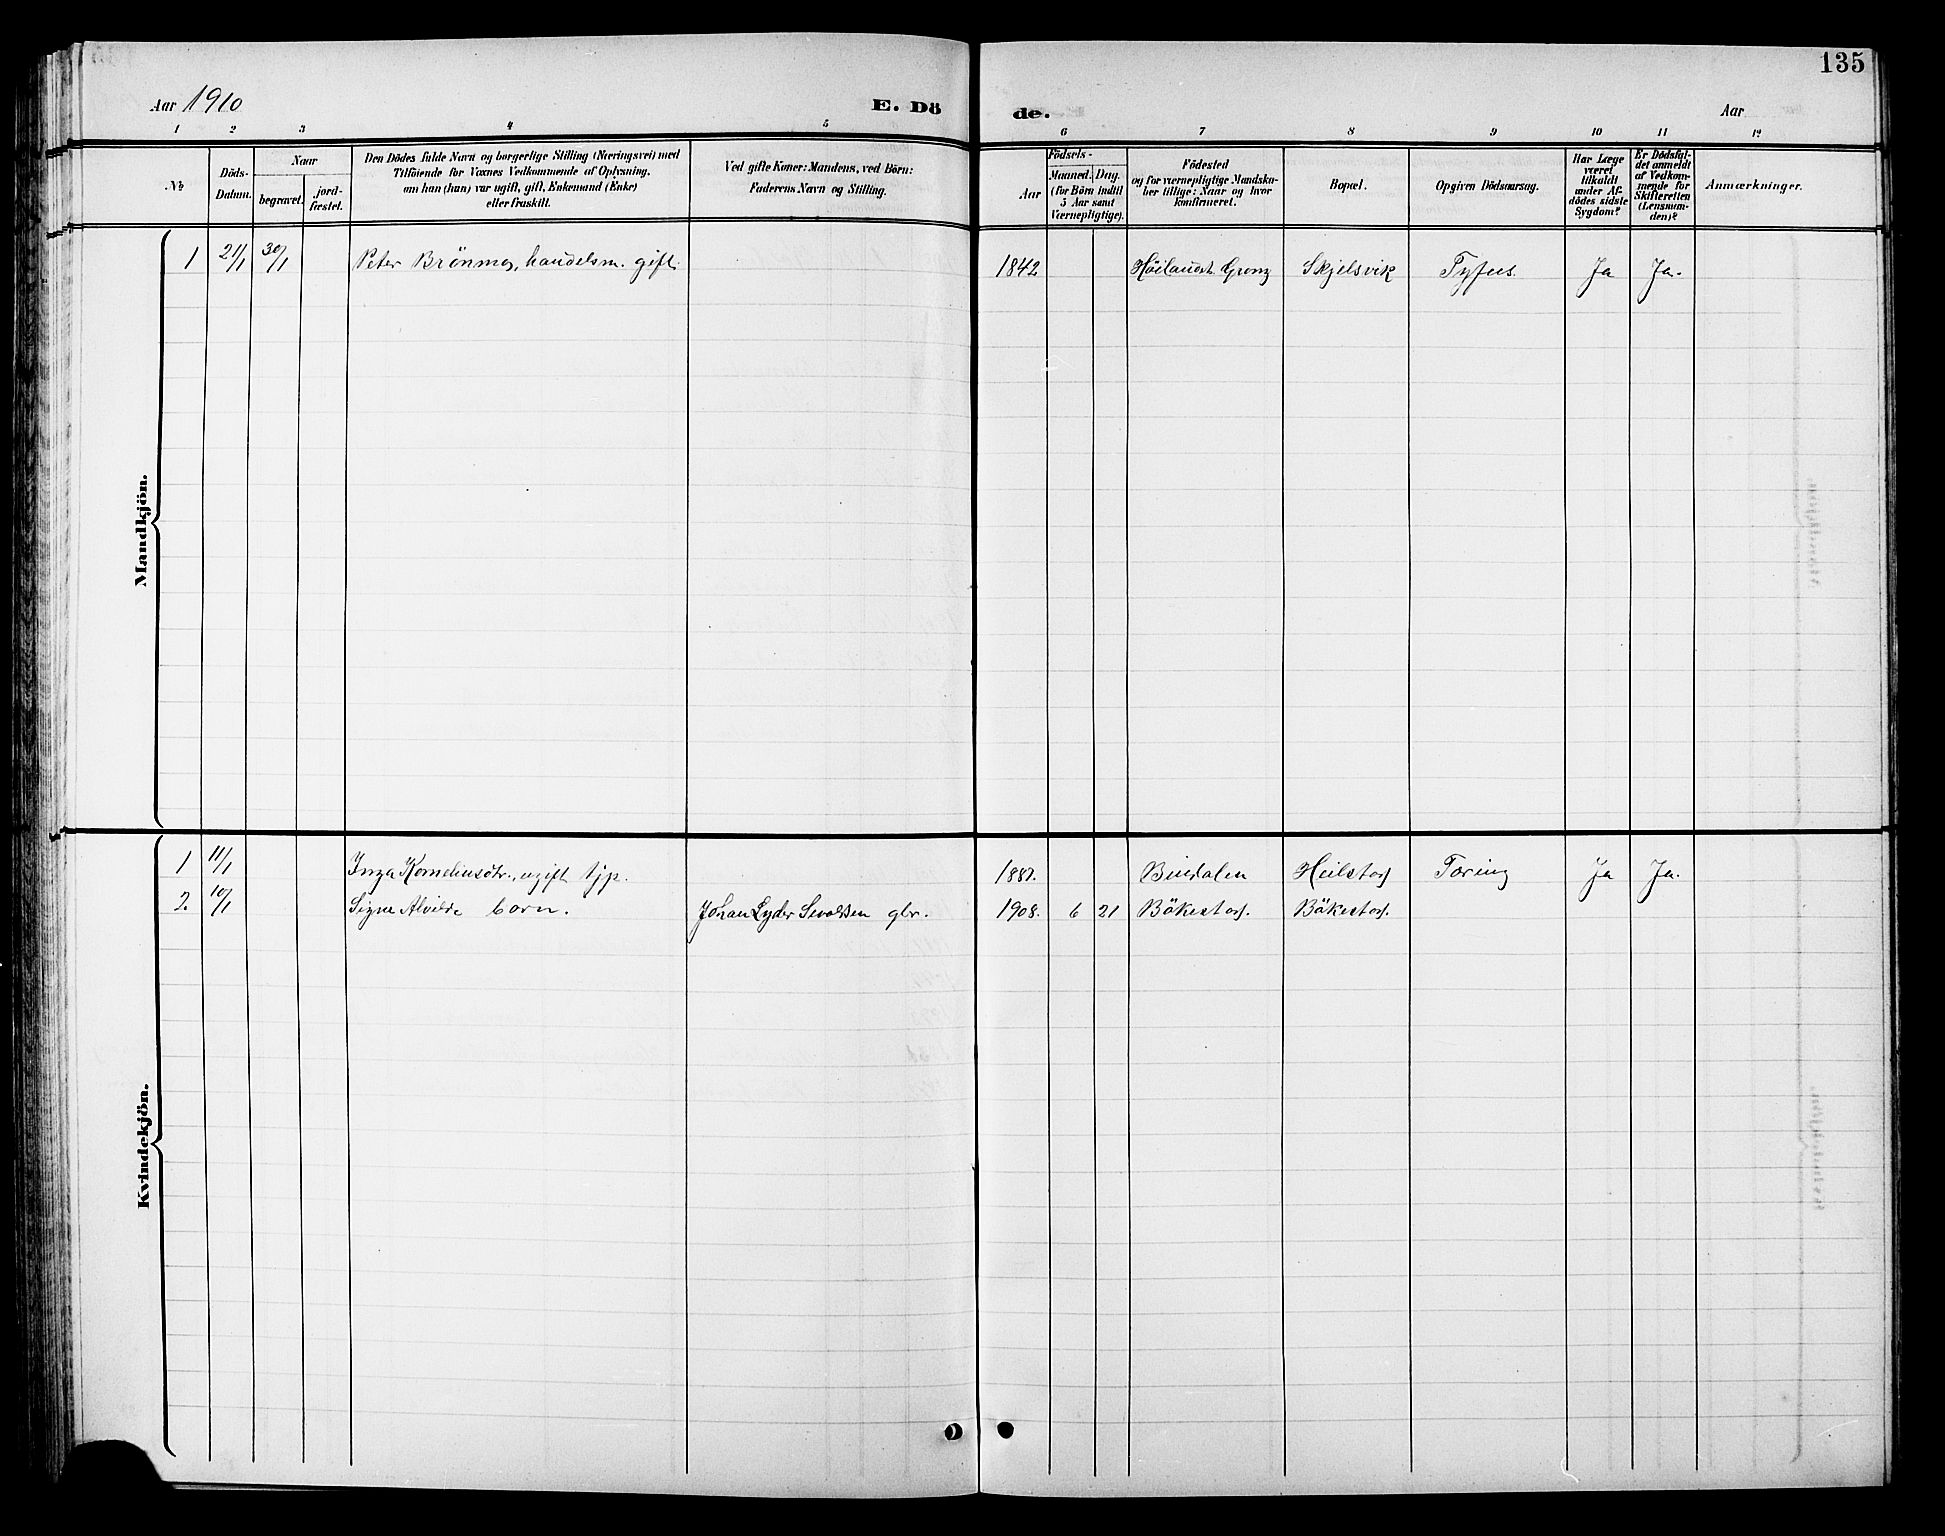 135
Aar 1910
E. Dö
de.
Aar
1 2 3 4 5 6 7 8 9 10 11 12
No
Döds-
Datum.
Naar
begravet.
jord-
fæstet.
Den Dödes fulde Navn og borgerlige Stilling (Næringsvei) med
Tilföiende for Voxnes Vedkommende af Oplysning,
om han (hun) var ugift, gift, Enkemand (Enke)
eller fraskilt.
Ved gifte Koner: Mandens, ved Börn:
Faderens Navn og Stilling.
Födsels-
Aar
Maaned.
Dag.
(for Börn indtil
5 Aar samt
Værnepligtige).
Födested
og for værnepligtige Mandska-
ber tillige: Naar og hvor
konfirmeret.
Bopæl.
Opgiven Dödsaarsag.
Har Læge
været
tilkaldt
under Af-
dödes sidste
Sygdom?
Er Dödsfal-
det anmeldt
af Vedkom-
mende for
Skifteretten
(Lensman-
den)?
Anmærkninger.
Mandkjön.
1 21/1 30/1 Peter Brönmo, handelsm. gift. 1842 Skjelsvik Tyfus. Ja Ja.
Kvindekjön.
1 11/1 Inga Korneliusdtr., ugift tjp. 1887. Bindalen Heilstad Tæring Ja Ja.
2. 10/1 Signe Alvilde barn. Johan Lyder Sivertsen gbr. 1908. 6 21 Bökestad. Bökestad.